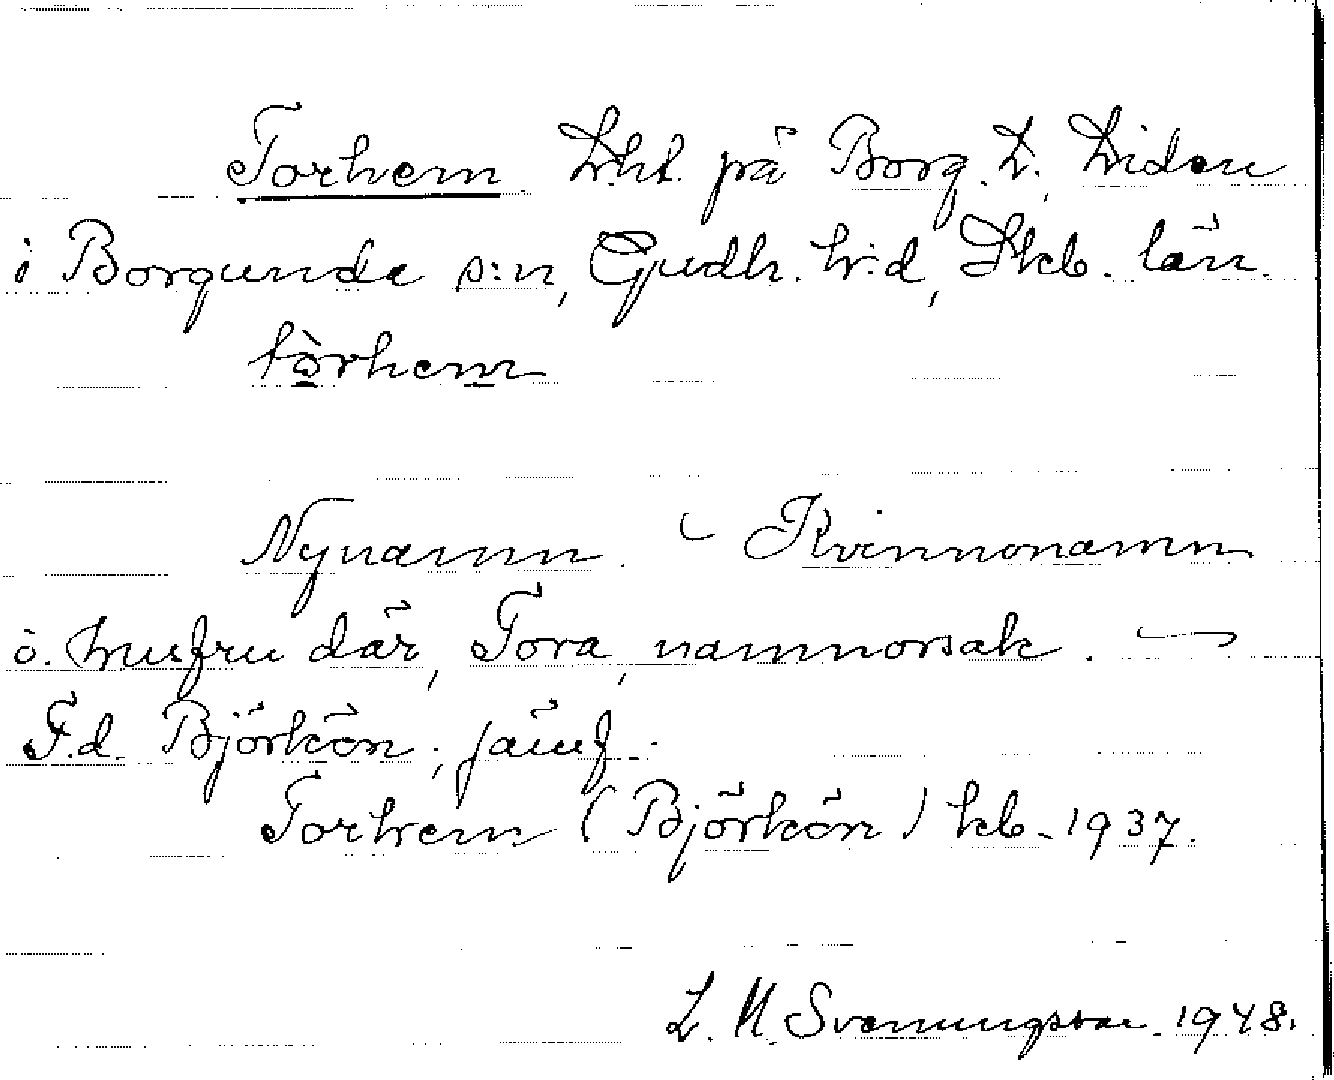 Torhem. Lht. på Borg. L. Liden
i Borgunda s:n, Gudh. h:d, Skb. län.
tòrhem
Nynamn. Kvinnonamn
ö. husfru där, Tora, namnorsak. —
F.d. Björkön, jämf.
Torhem (Björkön) kb. 1937.
L. M. Svenungsson. 1948.